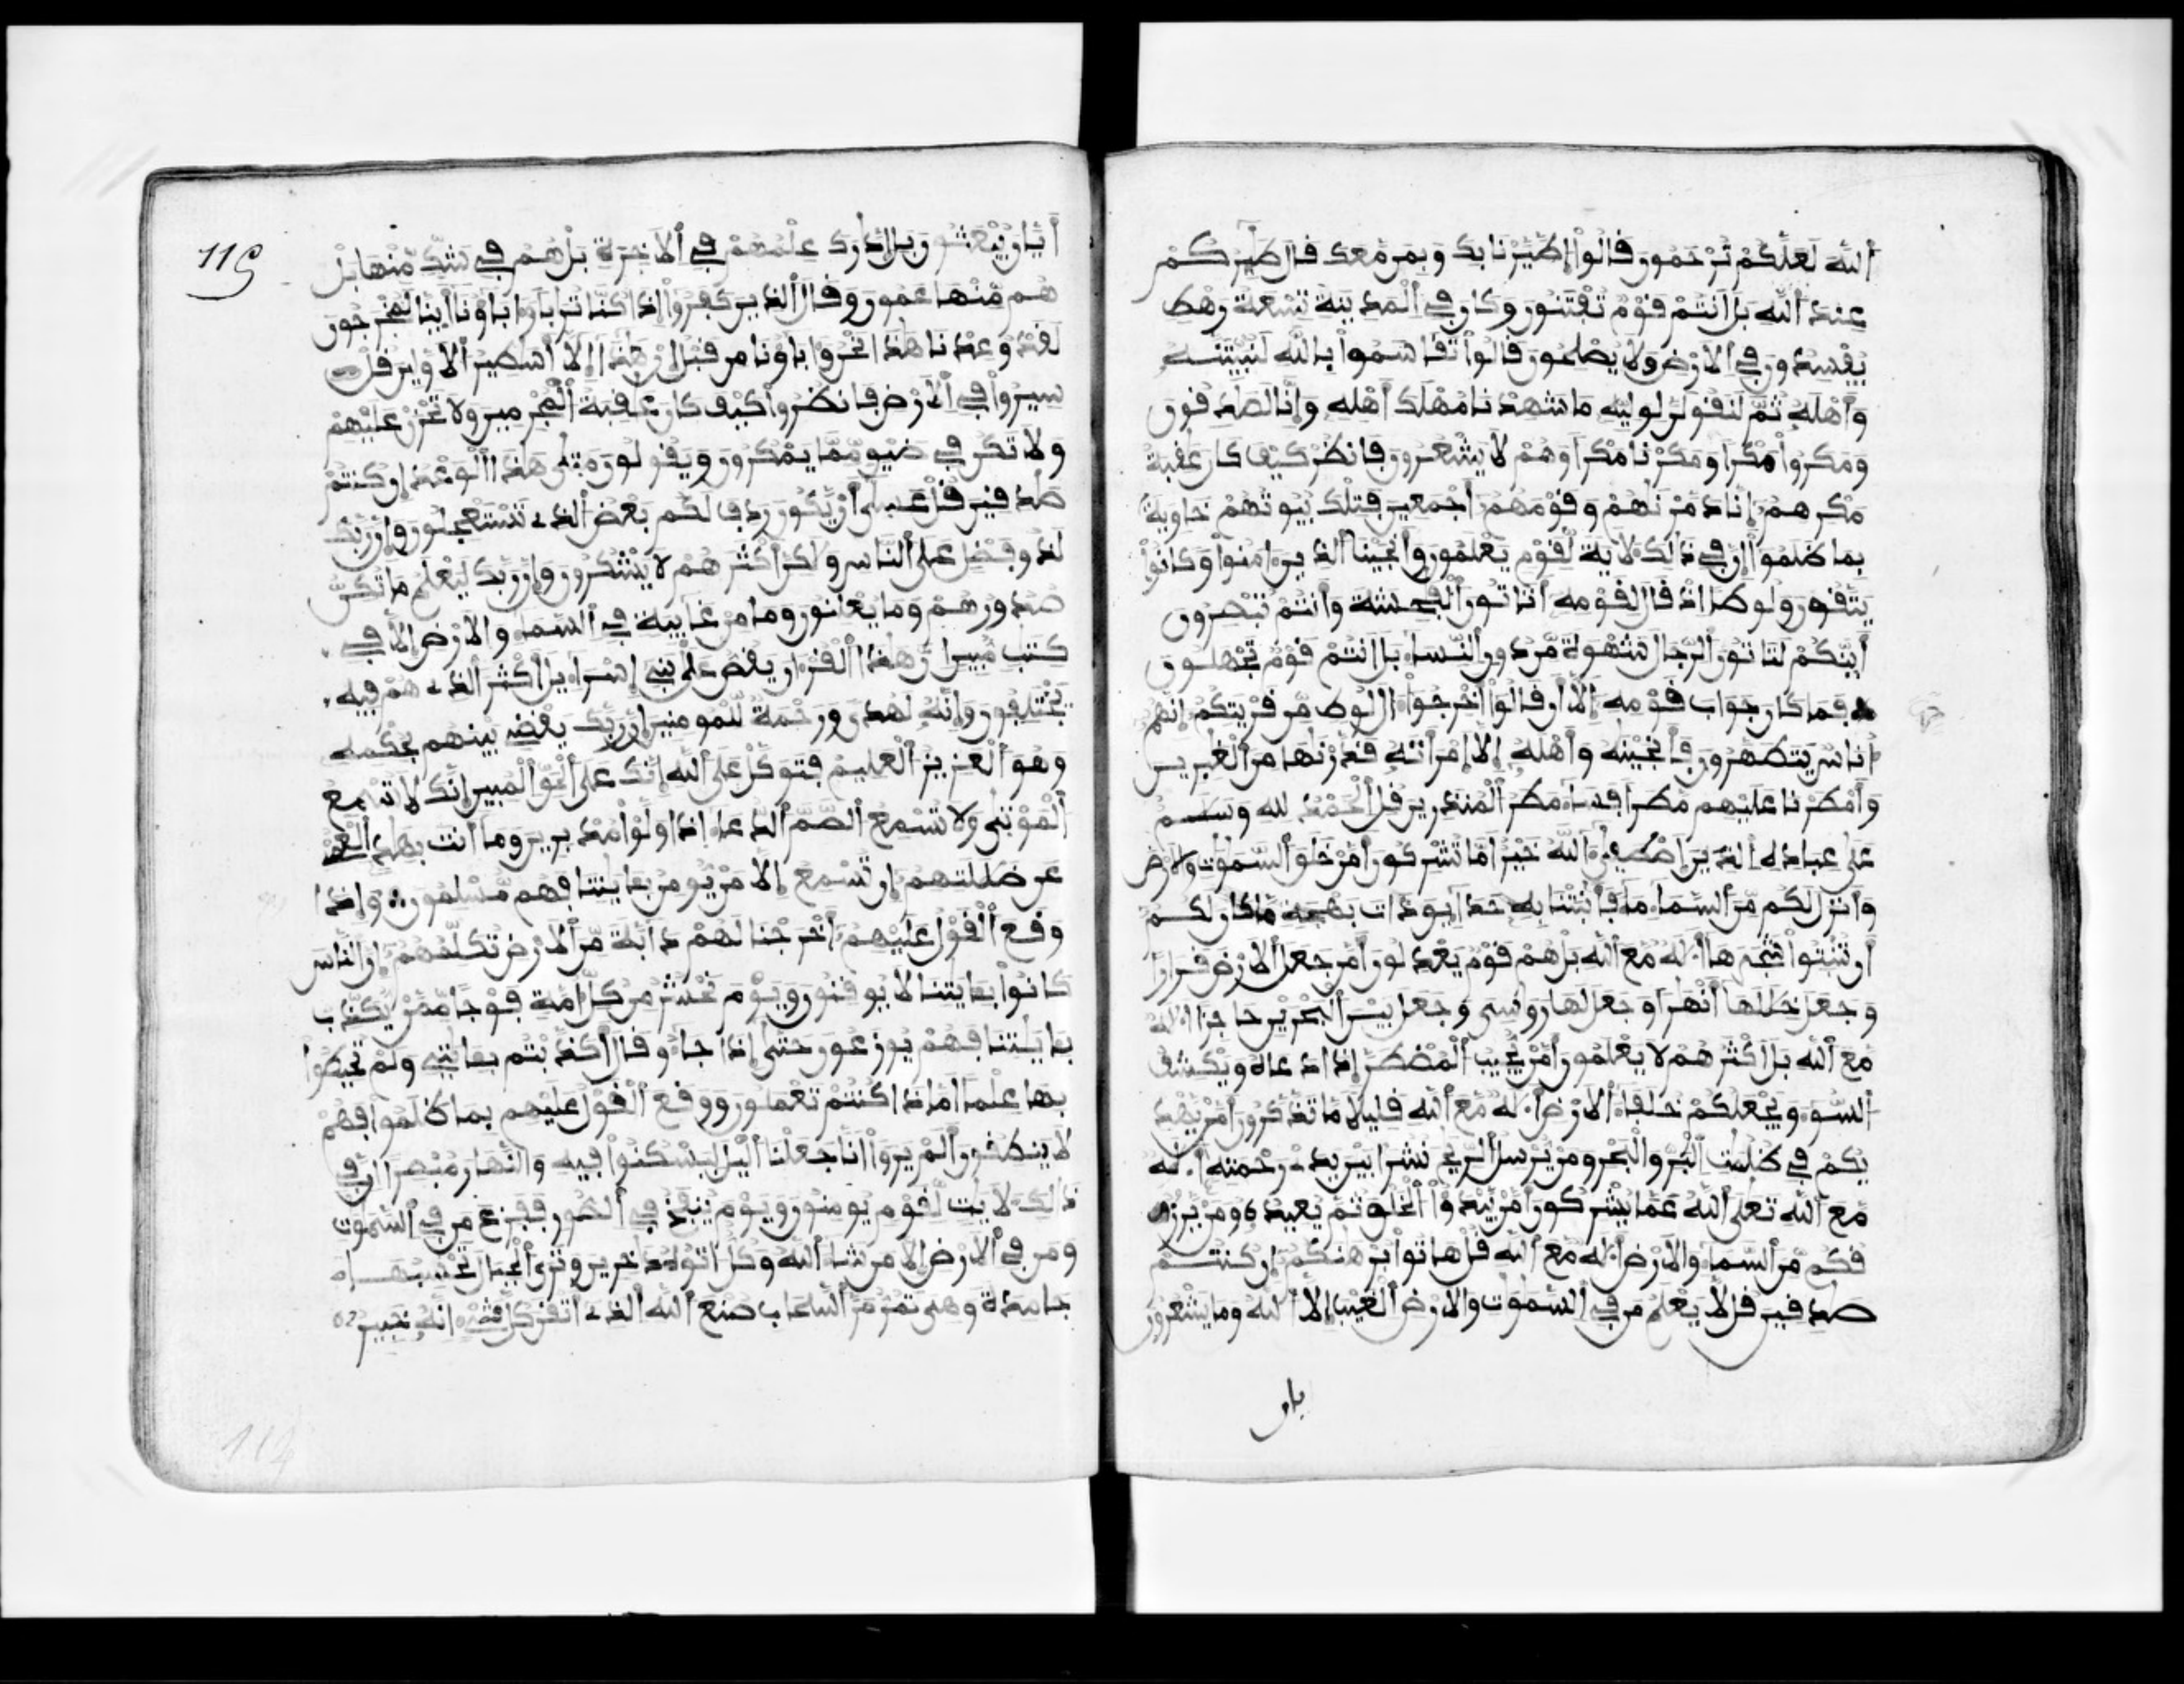 ٱللَّهَ لَعَلَّكُمْ تُرْحَمُونَ قَالُوا۟ اٰطَّيَّرْنَا بِكَ وَبِمَن مَّعَكَ قَالَ طَٰٓئِرُكُمْ
عِندَ ٱللَّهِ بَلْ أَنتُمْ قَوْمٌ تُفْتَنُونَ وَكَانَ فِى ٱلْمَدِينَةِ تِسْعَةُ رَهْطٍ
يُفْسِدُونَ فِى ٱلْأَرْضِ وَلَا يُصْلِحُونَ قَالُوا۟ تَقَاسَمُوا۟ بِٱللَّهِ لَنُبَيِّتَنَّهُۥ
وَأَهْلَهُۥ ثُمَّ لَنَقُولَنَّ لِوَلِيِّهِۦ مَا شَهِدْنَا مُهْلَكَ أَهْلِهِۦ وَإِنَّا لَصَٰدِقُونَ
وَمَكَرُوا۟ مَكْرًا وَمَكَرْنَا مَكْرًا وَهُمْ لَا يَشْعُرُونَ فَٱنظُرْ كَيْفَ كَانَ عَٰقِبَةُ
مَكْرِهِمْ إِنَّا دَمَّرْنَٰهُمْ وَقَوْمَهُمْ أَجْمَعِينَ فَتِلْكَ بُيُوتُهُمْ خَاوِيَةً
بِمَا ظَلَمُوا۟ إِنَّ فِى ذَٰلِكَ لَأٓيَةً لِّقَوْمٍ يَعْلَمُونَ وَأَنجَيْنَا ٱلَّذِينَ ءَامَنُوا۟ وَكَانُوا۟
يَتَّقُونَ وَلُوطًا إِذْ قَالَ لِقَوْمِهِۦٓ أَتَاتُونَ ٱلْفَٰحِشَةَ وَأَنتُمْ تُبْصِرُونَ
أَئِنَّكُمْ لَتَاتُونَ ٱلرِّجَالَ شَهْوَةً مِّن دُونِ ٱلنِّسَآءِ بَلْ أَنتُمْ قَوْمٌ تَجْهَلُونَ
فَمَا كَانَ جَوَابَ قَوْمِهِۦٓ إِلَّآ أَن قَالُوٓا۟ أَخْرِجُوٓا۟ ءَالَ لُوطٍ مِّن قَرْيَتِكُمْ إِنَّهُمْ
أُنَاسٌ يَتَطَهَّرُونَ فَأَنجَيْنَٰهُ وَأَهْلَهُۥٓ إِلَّا ٱمْرَأَتَهُۥ قَدَّرْنَٰهَا مِنَ ٱلْغَٰبِرِينَ
وَأَمْطَرْنَا عَلَيْهِم مَّطَرًا فَسَآءَ مَطَرُ ٱلْمُنذَرِينَ قُلِ ٱلْحَمْدُ لِلَّهِ وَسَلَٰمٌ
عَلَىٰ عِبَادِهِ ٱلَّذِينَ ٱصْطَفَىٰٓ ءَآللَّهُ خَيْرٌ أَمَّا تُشْرِكُونَ أَمَّنْ خَلَقَ ٱلسَّمَٰوَٰتِ وَٱلْأَرْضَ
وَأَنزَلَ لَكُم مِّنَ ٱلسَّمَآءِ مَآءً فَأَنۢبَتْنَا بِهِۦ حَدَآئِقَ ذَاتَ بَهْجَةٍ مَّا كَانَ لَكُمْ
أَن تُنۢبِتُوا۟ شَجَرَهَآ أَٰ۟لَٰهٌ مَّعَ ٱللَّهِ بَلْ هُمْ قَوْمٌ يَعْدِلُونَ أَمَّن جَعَلَ ٱلْأَرْضَ قَرَارًا
وَجَعَلَ خِلَٰلَهَآ أَنْهَٰرًا وَجَعَلَ لَهَا رَوَٰسِىَ وَجَعَلَ بَيْنَ ٱلْبَحْرَيْنِ حَاجِزًا أَٰ۟لَٰهٌ
مَّعَ ٱللَّهِ بَلْ أَكْثَرُهُمْ لَا يَعْلَمُونَ أَمَّن يُجِيبُ ٱلْمُضْطَرَّ إِذَا دَعَاهُ وَيَكْشِفُ
ٱلسُّوٓءَ وَيَجْعَلُكُمْ خُلَفَآءَ ٱلْأَرْضِ أَٰ۟لَٰهٌ مَّعَ ٱللَّهِ قَلِيلًا مَّا تَذَّكَّرُونَ أَمَّن يَهْدِ
يكُمْ فِى ظُلُمَٰتِ ٱلْبَرِّ وَٱلْبَحْرِ وَمَن يُرْسِلُ ٱلرِّيَٰحَ نُشُرًا بَيْنَ يَدَىْ رَحْمَتِهِۦٓ أَٰ۟لَٰهٌ
مَّعَ ٱللَّهِ تَعَٰلَى ٱللَّهُ عَمَّا يُشْرِكُونَ أَمَّن يَبْدَؤُا۟ ٱلْخَلْقَ ثُمَّ يُعِيدُهُۥ وَمَن يَرْزُ
قُكُم مِّنَ ٱلسَّمَآءِ وَٱلْأَرْضِ أَٰ۟لَٰهٌ مَّعَ ٱللَّهِ قُلْ هَاتُوا۟ بُرْهَٰنَكُمْ إِن كُنتُمْ
صَٰدِقِينَ قُل لَّا يَعْلَمُ مَن فِى ٱلسَّمَٰوَٰتِ وَٱلْأَرْضِ ٱلْغَيْبَ إِلَّا ٱللَّهُ وَمَا يَشْعُرُونَ
115
أَيَّانَ يُبْعَثُونَ بَلِ ٱدَّٰرَكَ عِلْمُهُمْ فِى ٱلْأَخِرَةِ بَلْ هُمْ فِى شَكٍّ مِّنْهَا بَلْ
هُم مِّنْهَا عَمُونَ وَقَالَ ٱلَّذِينَ كَفَرُوٓا۟ إِذَا كُنَّا تُرَٰبًا وَءَابَآؤُنَآ أَئِنَّا لَمُخْرَجُونَ
لَقَدْ وُعِدْنَا هَٰذَا نَحْنُ وَءَابَآؤُنَا مِن قَبْلُ إِنْ هَٰذَآ إِلَّآ أَسَٰطِيرُ ٱلْأَوَّلِينَ قُلْ
سِيرُوا۟ فِى ٱلْأَرْضِ فَٱنظُرُوا۟ كَيْفَ كَانَ عَٰقِبَةُ ٱلْمُجْرِمِينَ وَلَا تَحْزَنْ عَلَيْهِمْ
وَلَا تَكُن فِى ضَيْقٍ مِّمَّا يَمْكُرُونَ وَيَقُولُونَ مَتَىٰ هَٰذَا ٱلْوَعْدُ إِن كُنتُمْ
صَٰدِقِينَ قُلْ عَسَىٰٓ أَن يَكُونَ رَدِفَ لَكُم بَعْضُ ٱلَّذِى تَسْتَعْجِلُونَ وَإِنَّ رَبَّكَ
لَذُو فَضْلٍ عَلَى ٱلنَّاسِ وَلَٰكِنَّ أَكْثَرَهُمْ لَا يَشْكُرُونَ وَإِنَّ رَبَّكَ لَيَعْلَمُ مَا تُكِنُّ
صُدُورُهُمْ وَمَا يُعْلِنُونَ وَمَا مِنْ غَآئِبَةٍ فِى ٱلسَّمَآءِ وَٱلْأَرْضِ إِلَّا فِى
كِتَٰبٍ مُّبِينٍ إِنَّ هَٰذَا ٱلْقُرْءَانَ يَقُصُّ عَلَىٰ بَنِىٓ إِسْرَآءِيلَ أَكْثَرَ ٱلَّذِى هُمْ فِيهِ
يَخْتَلِفُونَ وَإِنَّهُۥ لَهُدًى وَرَحْمَةٌ لِّلْمُومِنِينَ إِنَّ رَبَّكَ يَقْضِى بَيْنَهُم بِحُكْمِهِۦ
وَهُوَ ٱلْعَزِيزُ ٱلْعَلِيمُ فَتَوَكَّلْ عَلَى ٱللَّهِ إِنَّكَ عَلَى ٱلْحَقِّ ٱلْمُبِينِ إِنَّكَ لَا تُسْمِعُ
ٱلْمَوْتَىٰ وَلَا تُسْمِعُ ٱلصُّمَّ ٱلدُّعَآءَ إِذَا وَلَّوْا۟ مُدْبِرِينَ وَمَآ أَنتَ بِهَٰدِى ٱلْعُمْىِ
عَن ضَلَٰلَتِهِمْ إِن تُسْمِعُ إِلَّا مَن يُومِنُ بِـَٔايَٰتِنَا فَهُم مُّسْلِمُونَ وَإِذَا
وَقَعَ ٱلْقَوْلُ عَلَيْهِمْ أَخْرَجْنَا لَهُمْ دَآبَّةً مِّنَ ٱلْأَرْضِ تُكَلِّمُهُمْ إِنَّ ٱلنَّاسَ
كَانُوا۟ بِـَٔايَٰتِنَا لَا يُوقِنُونَ وَيَوْمَ نَحْشُرُ مِن كُلِّ أُمَّةٍ فَوْجًا مِّمَّن يُكَذِّبُ
بِـَٔايَٰتِنَا فَهُمْ يُوزَعُونَ حَتَّىٰٓ إِذَا جَآءُو قَالَ أَكَذَّبْتُم بِـَٔايَٰتِى وَلَمْ تُحِيطُوا۟
بِهَا عِلْمًا أَمَّاذَا كُنتُمْ تَعْمَلُونَ وَوَقَعَ ٱلْقَوْلُ عَلَيْهِم بِمَا ظَلَمُوا۟ فَهُمْ
لَا يَنطِقُونَ أَلَمْ يَرَوْا۟ أَنَّا جَعَلْنَا ٱلَّيْلَ لِيَسْكُنُوا۟ فِيهِ وَٱلنَّهَارَ مُبْصِرًا إِنَّ فِى
ذَٰلِكَ لَأٓيَٰتٍ لِّقَوْمٍ يُومِنُونَ وَيَوْمَ يُنفَخُ فِى ٱلصُّورِ فَفَزِعَ مَن فِى ٱلسَّمَٰوَٰتِ
وَمَن فِى ٱلْأَرْضِ إِلَّا مَن شَآءَ ٱللَّهُ وَكُلٌّ ءَاتُوهُ دَٰخِرِينَ وَتَرَى ٱلْجِبَالَ تَحْسِبُهَا
جَامِدَةً وَهِىَ تَمُرُّ مَرَّ ٱلسَّحَابِ صُنْعَ ٱللَّهِ ٱلَّذِىٓ أَتْقَنَ كُلَّ شَىْءٍ إِنَّهُۥ خَبِيرٌۢ
114